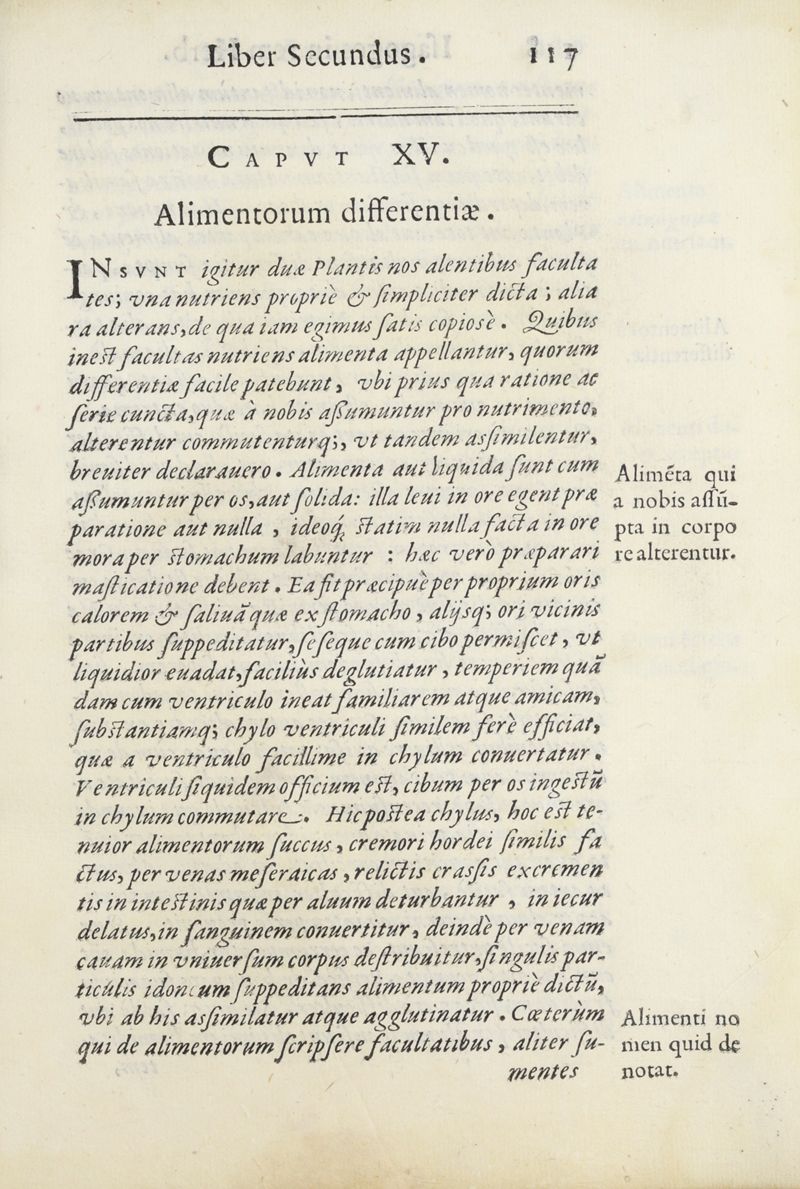 Liber Secundus. 117
CAPVT XV.
Alimentorum differentiæ.
INSVNT igitur duæ Plantis nos alentibus faculta
tes; vna nutriens propriè & ſimpliciter dicta; alia
ra alterans, de qua iam egimus ſatis copiosè. Quibus
ineſt facultas nutriens alimenta appellantur, quorum
differentiæ facile patebunt, vbi prius qua ratione ac
ſerie cuncta, quæ à nobis aſsumuntur pro nutrimento,
alterentur commutenturq;, vt tandem asſimilentur,
breuiter declarauero. Alimenta aut liquida ſunt cum
aſsumuntur per os, aut ſolida: illa leui in ore egent præ
paratione aut nulla, ideoq; ſtatim nulla facta in ore
mora per ſtomachum labuntur: hæc verò præparari
maſticatione debent. Ea fit præcipuè per proprium oris
calorem & ſaliuã quæ ex ſtomacho, alijsq; ori vicinis
partibus ſuppeditatur, ſeſeque cum cibo permiſcet, vt
liquidior euadat, facilius deglutiatur, temperiem quã
dam cum ventriculo ineat familiarem atque amicam,
ſubſtantiamq; chylo ventriculi ſimilem ferè efficiat,
quæ a ventriculo facillime in chylum conuertatur.
Ventriculi ſiquidem officium eſt, cibum per os ingeſtũ
in chylum commutare. Hic poſtea chylus, hoc eſt te-
nuior alimentorum ſuccus, cremori hordei ſimilis fa
ctus, per venas meſeraicas, relictis crasſis excremen
tis in inteſtinis quæ per aluum deturbantur, in iecur
delatus, in ſanguinem conuertitur, deindè per venam
cauam in vniuerſum corpus deſtribuitur, ſingulis par-
ticulis idoneum ſuppeditans alimentum propriè dictũ,
vbi ab his asſimilatur atque agglutinatur. Cœterùm
qui de alimentorum ſcripſere facultatibus, aliter ſu-
mentes
Alimẽta qui
a nobis aſſũ-
pta in corpo
re alterentur.
Alimenti no
men quid de
notat.